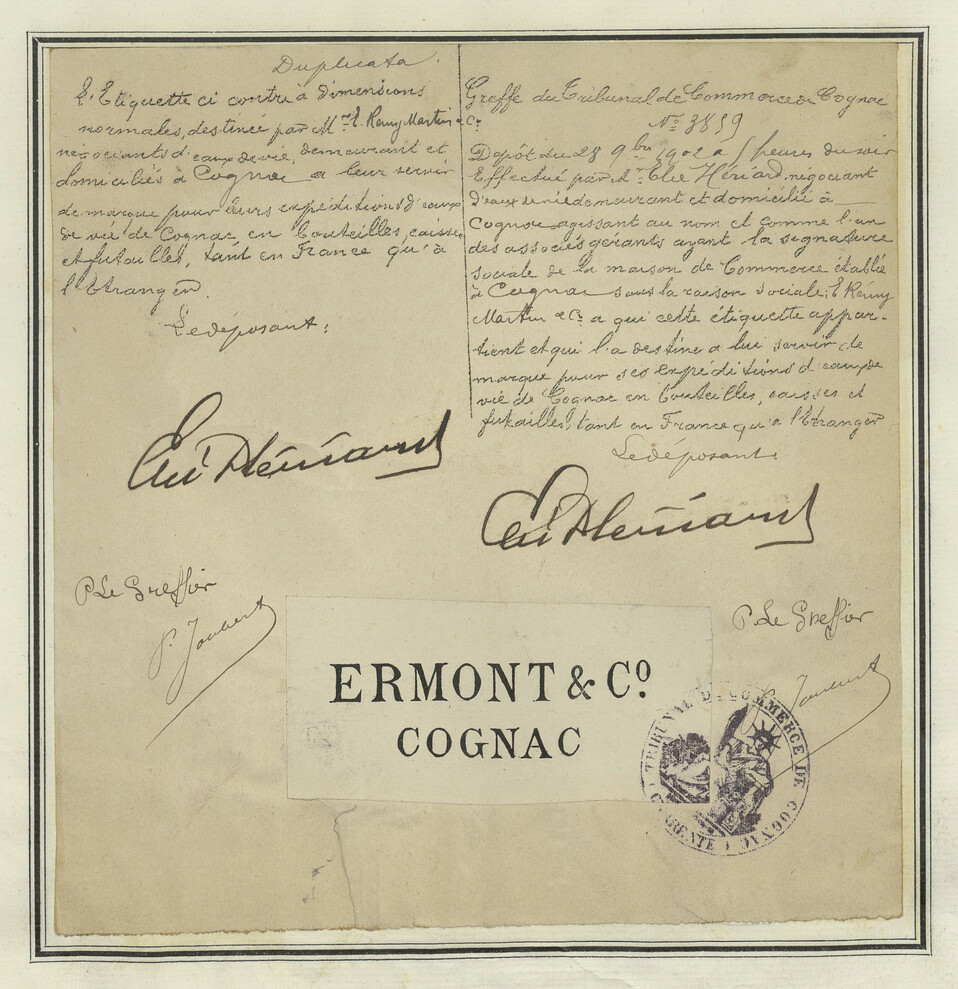 Duplicata.
L'Etiquette ci contre à dimensions
normales, destinée par Mrs E. Remy Martin & Co
négociants d'eaux de vie, demeurant et
domiciliés à Cognac a leur servir
de marque pour leurs expéditions d'eaux
de vie de Cognac en bouteilles, caisses
et futailles, tant en France qu'à
l'Etranger.
Le déposant:
Elie Hériard
P. Le Greffier
P. Joubert
Greffe du Tribunal de Commerce de Cognac
No 3859
Dépôt du 28 9bre 1902 à 5 heures du soir
Effectué par Mr Elie Hériard, négociant
d'eaux de vie demeurant et domicilié à
Cognac agissant au nom et comme l'un
des associés gérants ayant la signature
sociale de la maison de Commerce établie
à Cognac sous la raison sociale, E Rémy
Martin & Co a qui cette étiquette appar-
tient et qui l'a destine a lui servir de
marque pour ses expéditions d'eaux de
vie de Cognac en bouteilles, caisses et
futailles, tant en France qu'a l'Etranger
Le déposant.
Elie Hériard
P. Le Greffier
P. Joubert
ERMONT & Co.
COGNAC
TRIBUNAL DE COMMERCE DE COGNAC
(CHARENTE)